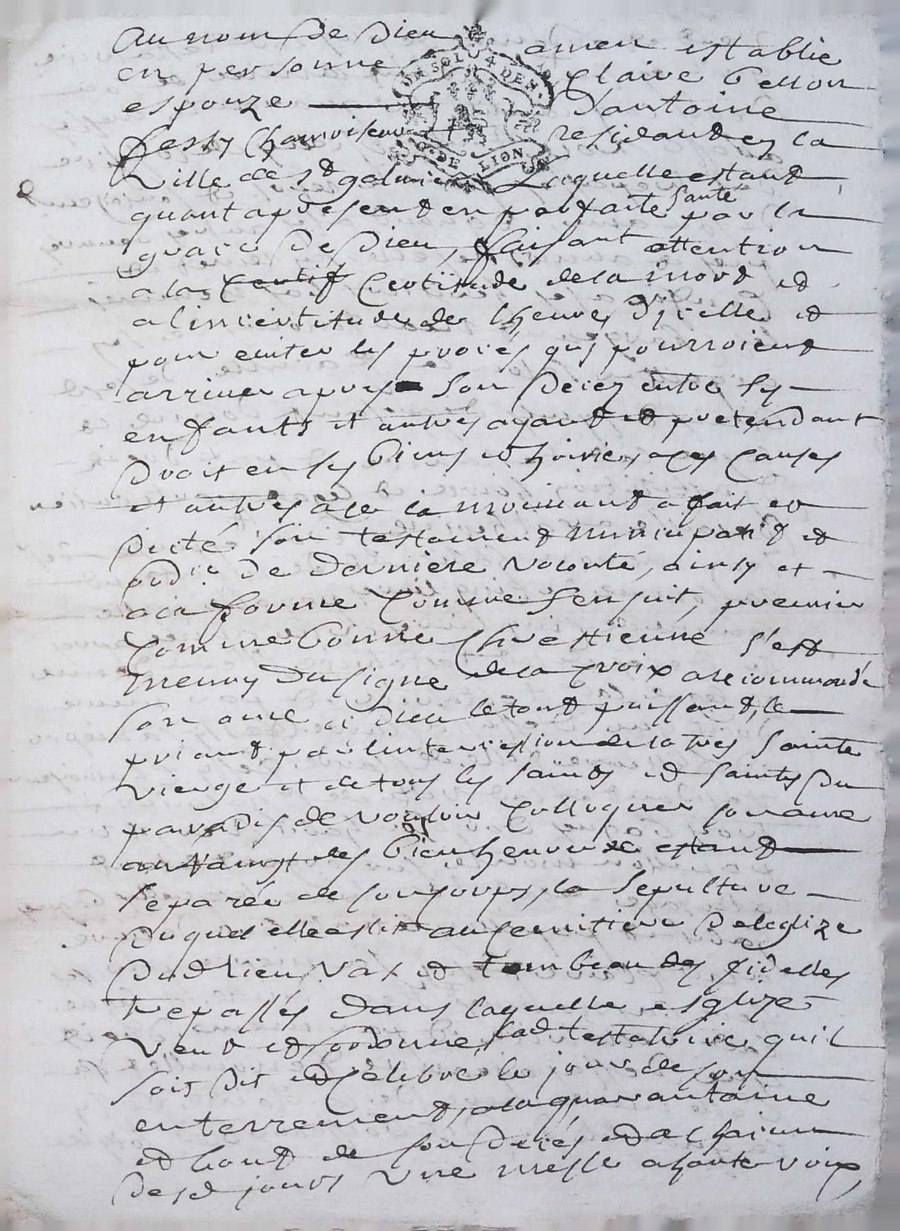 Au nom de Dieu amen establie
en personne Claire
espouze d'antoine
residant en la
Ville de St galmier Laquelle estant
quant apresent en parfaite santé par la
grace de Dieu, faisant attention
a la certif Certitude de la mort et
a lincertitude de lheure d'icelle et
pour eviter les proces quy pourroient
arriver apres son decez entre ses
enfants et autres ayant et pretendant
droit en ses biens
et autres a ce la mouvant a fait et
dicté son testament nuncupatif et
ordre de derniere volonté, ainsy et
a la forme comme sensuit, premier
comme bonne Chrestienne s'est
meuny du signe de la croix a recommandé
son ame a Dieu le tout puissant, le
priant par lintercession de la tres sainte
vierge et de tous les saints et saintes du
paradis de vouloir colloquer son ame
au rang des bienheureux estant
separée de son corps, la sepulture
duquel elle eslit au cemitiere de leglize
dudt lieu et tombeau des fidelles
trepassés dans laquelle esglize
veut et ordonne lad testatrice quil
soit dit et celebré le jour de son
enterrement, a la quarantaine
et bout de son decés et a chacun
desd jours une messe a haute voix,
UN SOL 4 DEN
G. DE LION